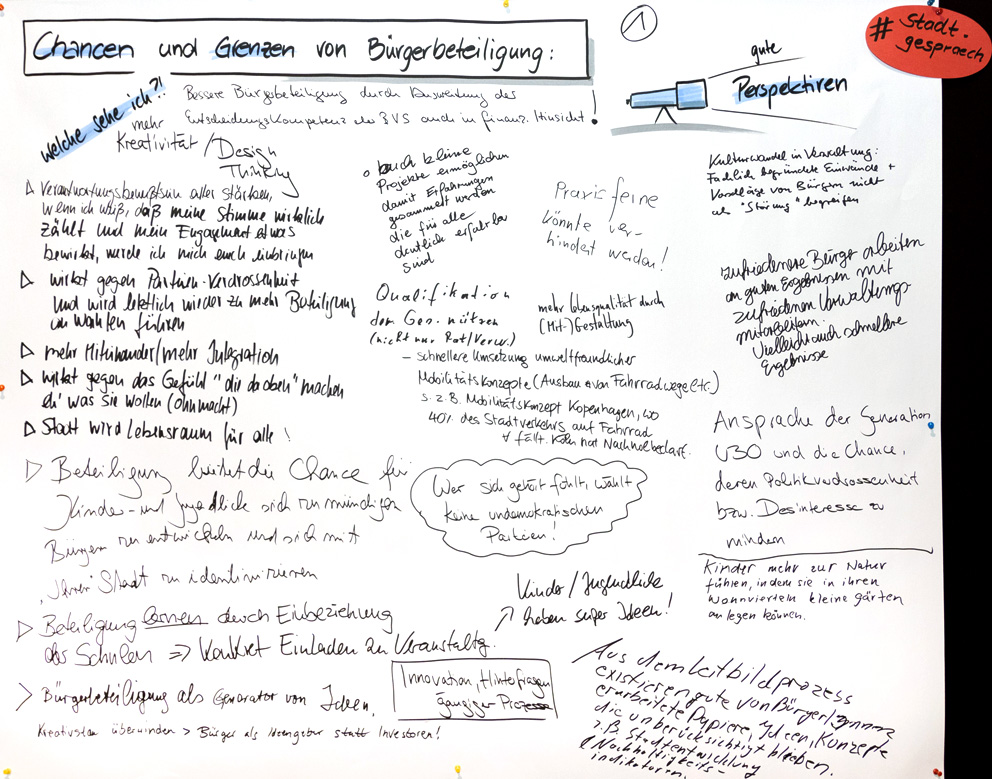 Chancen und Grenzen von Bürgerbeteiligung:
1
# Stadt-
gespraech
gute
Perspektiven
welche sehe ich?!
Bessere Bürgerbeteiligung durch Ausweitung des
Entscheidungskompetenz der BVS auch in finanz. Hinsicht!
mehr
Kreativität / Design
Thinking
Verantwortungsbewußtsein aller stärken,
wenn ich weiß, daß meine Stimme wirklich
zählt und mein Engagement etwas
bewirkt, werde ich mich auch einbringen
wirkt gegen Parteien-Verdrossenheit
und wird letztlich wieder zu mehr Beteiligung
an Wahlen führen
mehr Miteinander/mehr Integration
wirkt gegen das Gefühl "die da oben" machen
eh' was sie wollen (Ohnmacht)
Stadt wird Lebensraum für alle!
Beteiligung bietet die Chance für
Kinder- und Jugendliche sich zu mündigen
Bürgern zu entwickeln und sich mit
"Ihrer" Stadt zu identifizieren
Beteiligung lernen durch Einbeziehung
der Schulen => konkret Einladen zu Veranstaltg.
Bürgerbeteiligung als Generator von Ideen.
Kreativstau überwinden > Bürger als Ideengeber statt Investoren!
auch kleine
Projekte ermöglichen
damit Erfahrungen
gesammelt werden
die für alle
deutlich erfahrbar
sind
Praxisferne
könnte ver-
hindert werden!
Qualifikation
der Ges. nützen
(nicht nur Rat/Verw.)
mehr Lebensqualität durch
(Mit-)Gestaltung
– schnellere Umsetzung umweltfreundlicher
Mobilitätskonzepte (Ausbau von Fahrradwege etc.)
s. z.B. Mobilitätskonzept Kopenhagen, wo
40% des Stadtverkehrs auf Fahrrad
fällt. Köln hat Nachholbedarf.
Wer sich gehört fühlt, wählt
keine undemokratischen
Parteien!
Kinder/Jugendliche
haben super Ideen!
Innovation, Hinterfragen
gängiger Prozesse
Kulturwandel in Verwaltung:
Fachlich begründete Einwände +
Vorschläge von Bürgern nicht
als "Störung" begreifen
zufriedenere Bürger arbeiten
an guten Ergebnissen mit
zufriedenen Verwaltungs-
mitarbeitern.
Vielleicht auch schnellere
Ergebnisse
Ansprache der Generation
U30 und die Chance,
deren Politikverdrossenheit
bzw. Desinteresse zu
mindern
Kinder mehr zur Natur
führen, indem sie in ihren
Wohnvierteln kleine gärten
anlegen können.
Aus dem Leitbildprozess
existieren gute von Bürger/innen
erarbeitete Papiere, Ideen, Konzepte
die unberücksichtigt bleiben.
z.B. Stadtentwicklung
Nachhaltigkeits-
indikatoren.